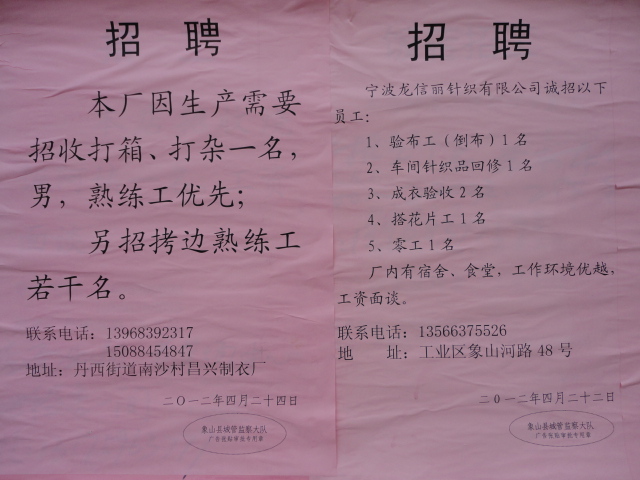 招 聘
本厂因生产需要
招收打箱、打杂一名，
男，熟练工优先；
另招拷边熟练工
若干名。
联系电话：13968392317
15088454847
地址：丹西街道南沙村昌兴制衣厂
二〇一二年四月二十四日
象山县城管监察大队
广告张贴审批专用章
招 聘
宁波龙信丽针织有限公司诚招以下
员工：
1、验布工（倒布）1名
2、车间针织品回修1名
3、成衣验收2名
4、搭花片工1名
5、零工1名
厂内有宿舍、食堂，工作环境优越，
工资面谈。
联系电话：13566375526
地 址：工业区象山河路48号
二〇一二年四月二十二日
象山县城管监察大队
广告张贴审批专用章